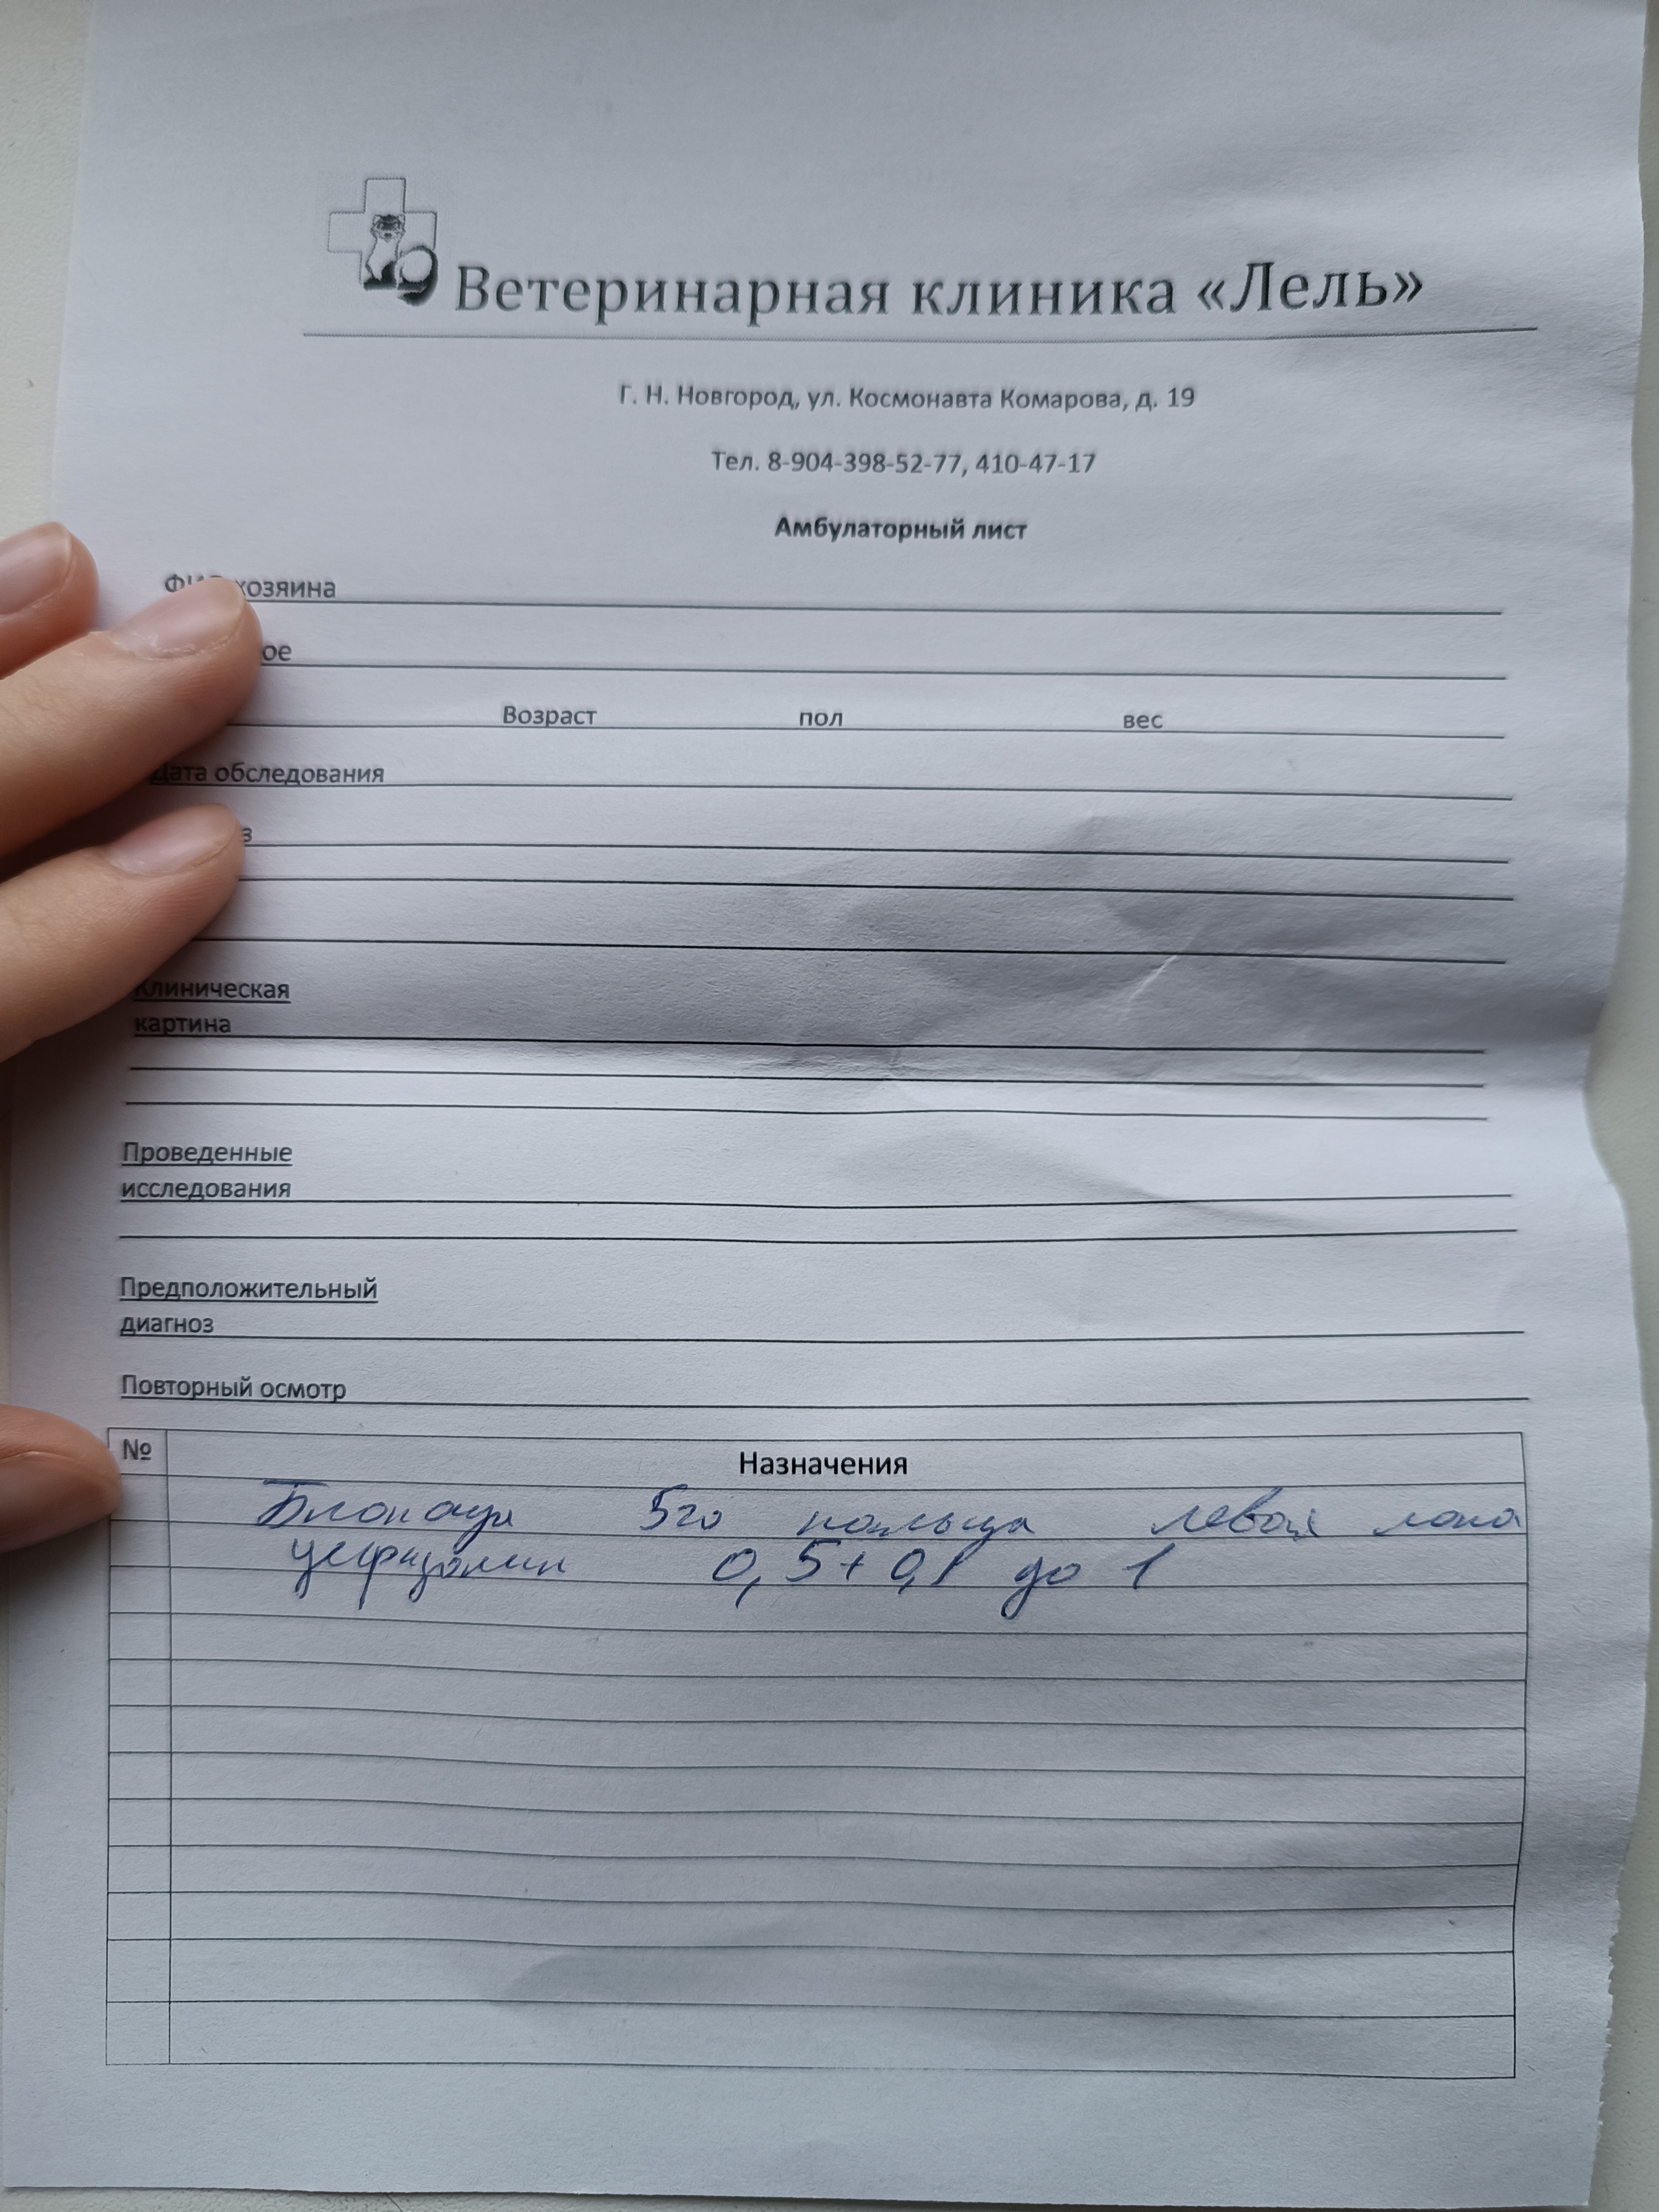 Ветеринарная клиника «Лель»
Г. Н. Новгород, ул. Космонавта Комарова, д. 19
Тел. 8-904-398-52-77, 410-47-17
Амбулаторный лист
хозяина
ое
Возраст пол вес
Дата обследования
з
Клиническая
картина
Проведенные
исследования
Предположительный
диагноз
Повторный осмотр
№ Назначения
Блокада 5го пальца левая лапа
цефазолин 0,5+0,1 до 1